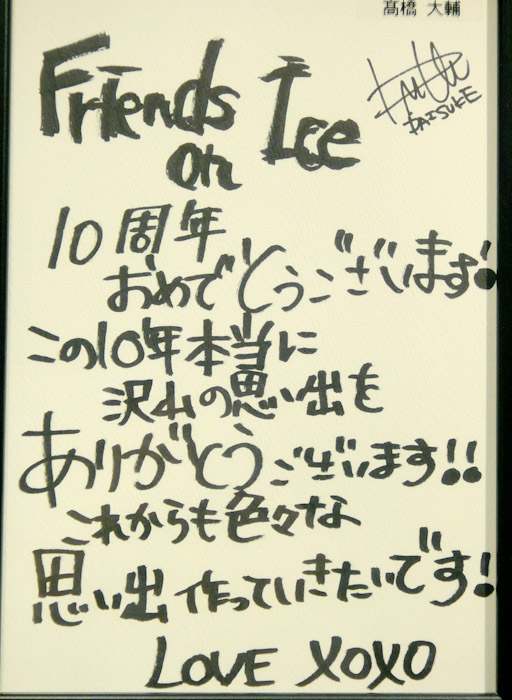 高橋 大輔
DAISUKE
Friends
on Ice
10周年
おめでとうございます!
この10年本当に
沢山の思い出を
ありがとうございます!!
これからも色々な
思い出作っていきたいです!
LOVE XOXO